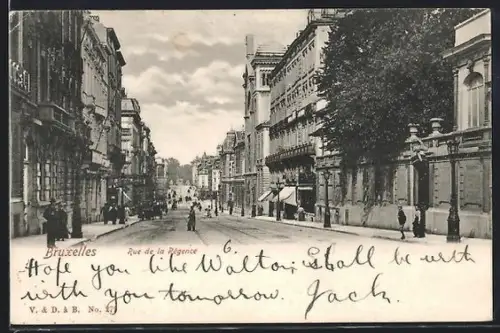 Bruxelles Rue de la Régence
6.
Hope you like Walton, Shall be with
with you tomorrow. Jack.
V. & D. & B. No.